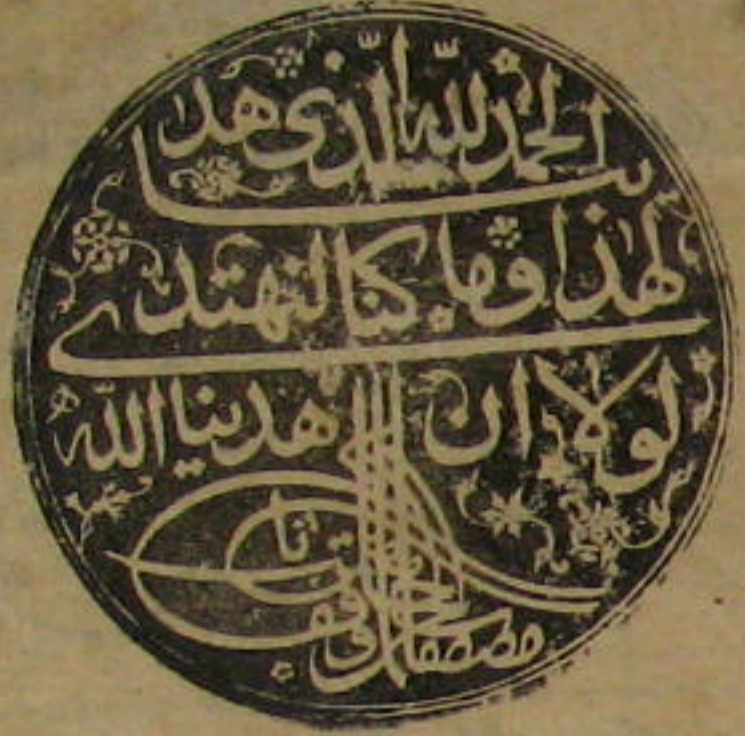 الحمد لله الذى هدانا
لهذا وما كنا لنهتدى
لولا ان هدينا الله
مصطفى